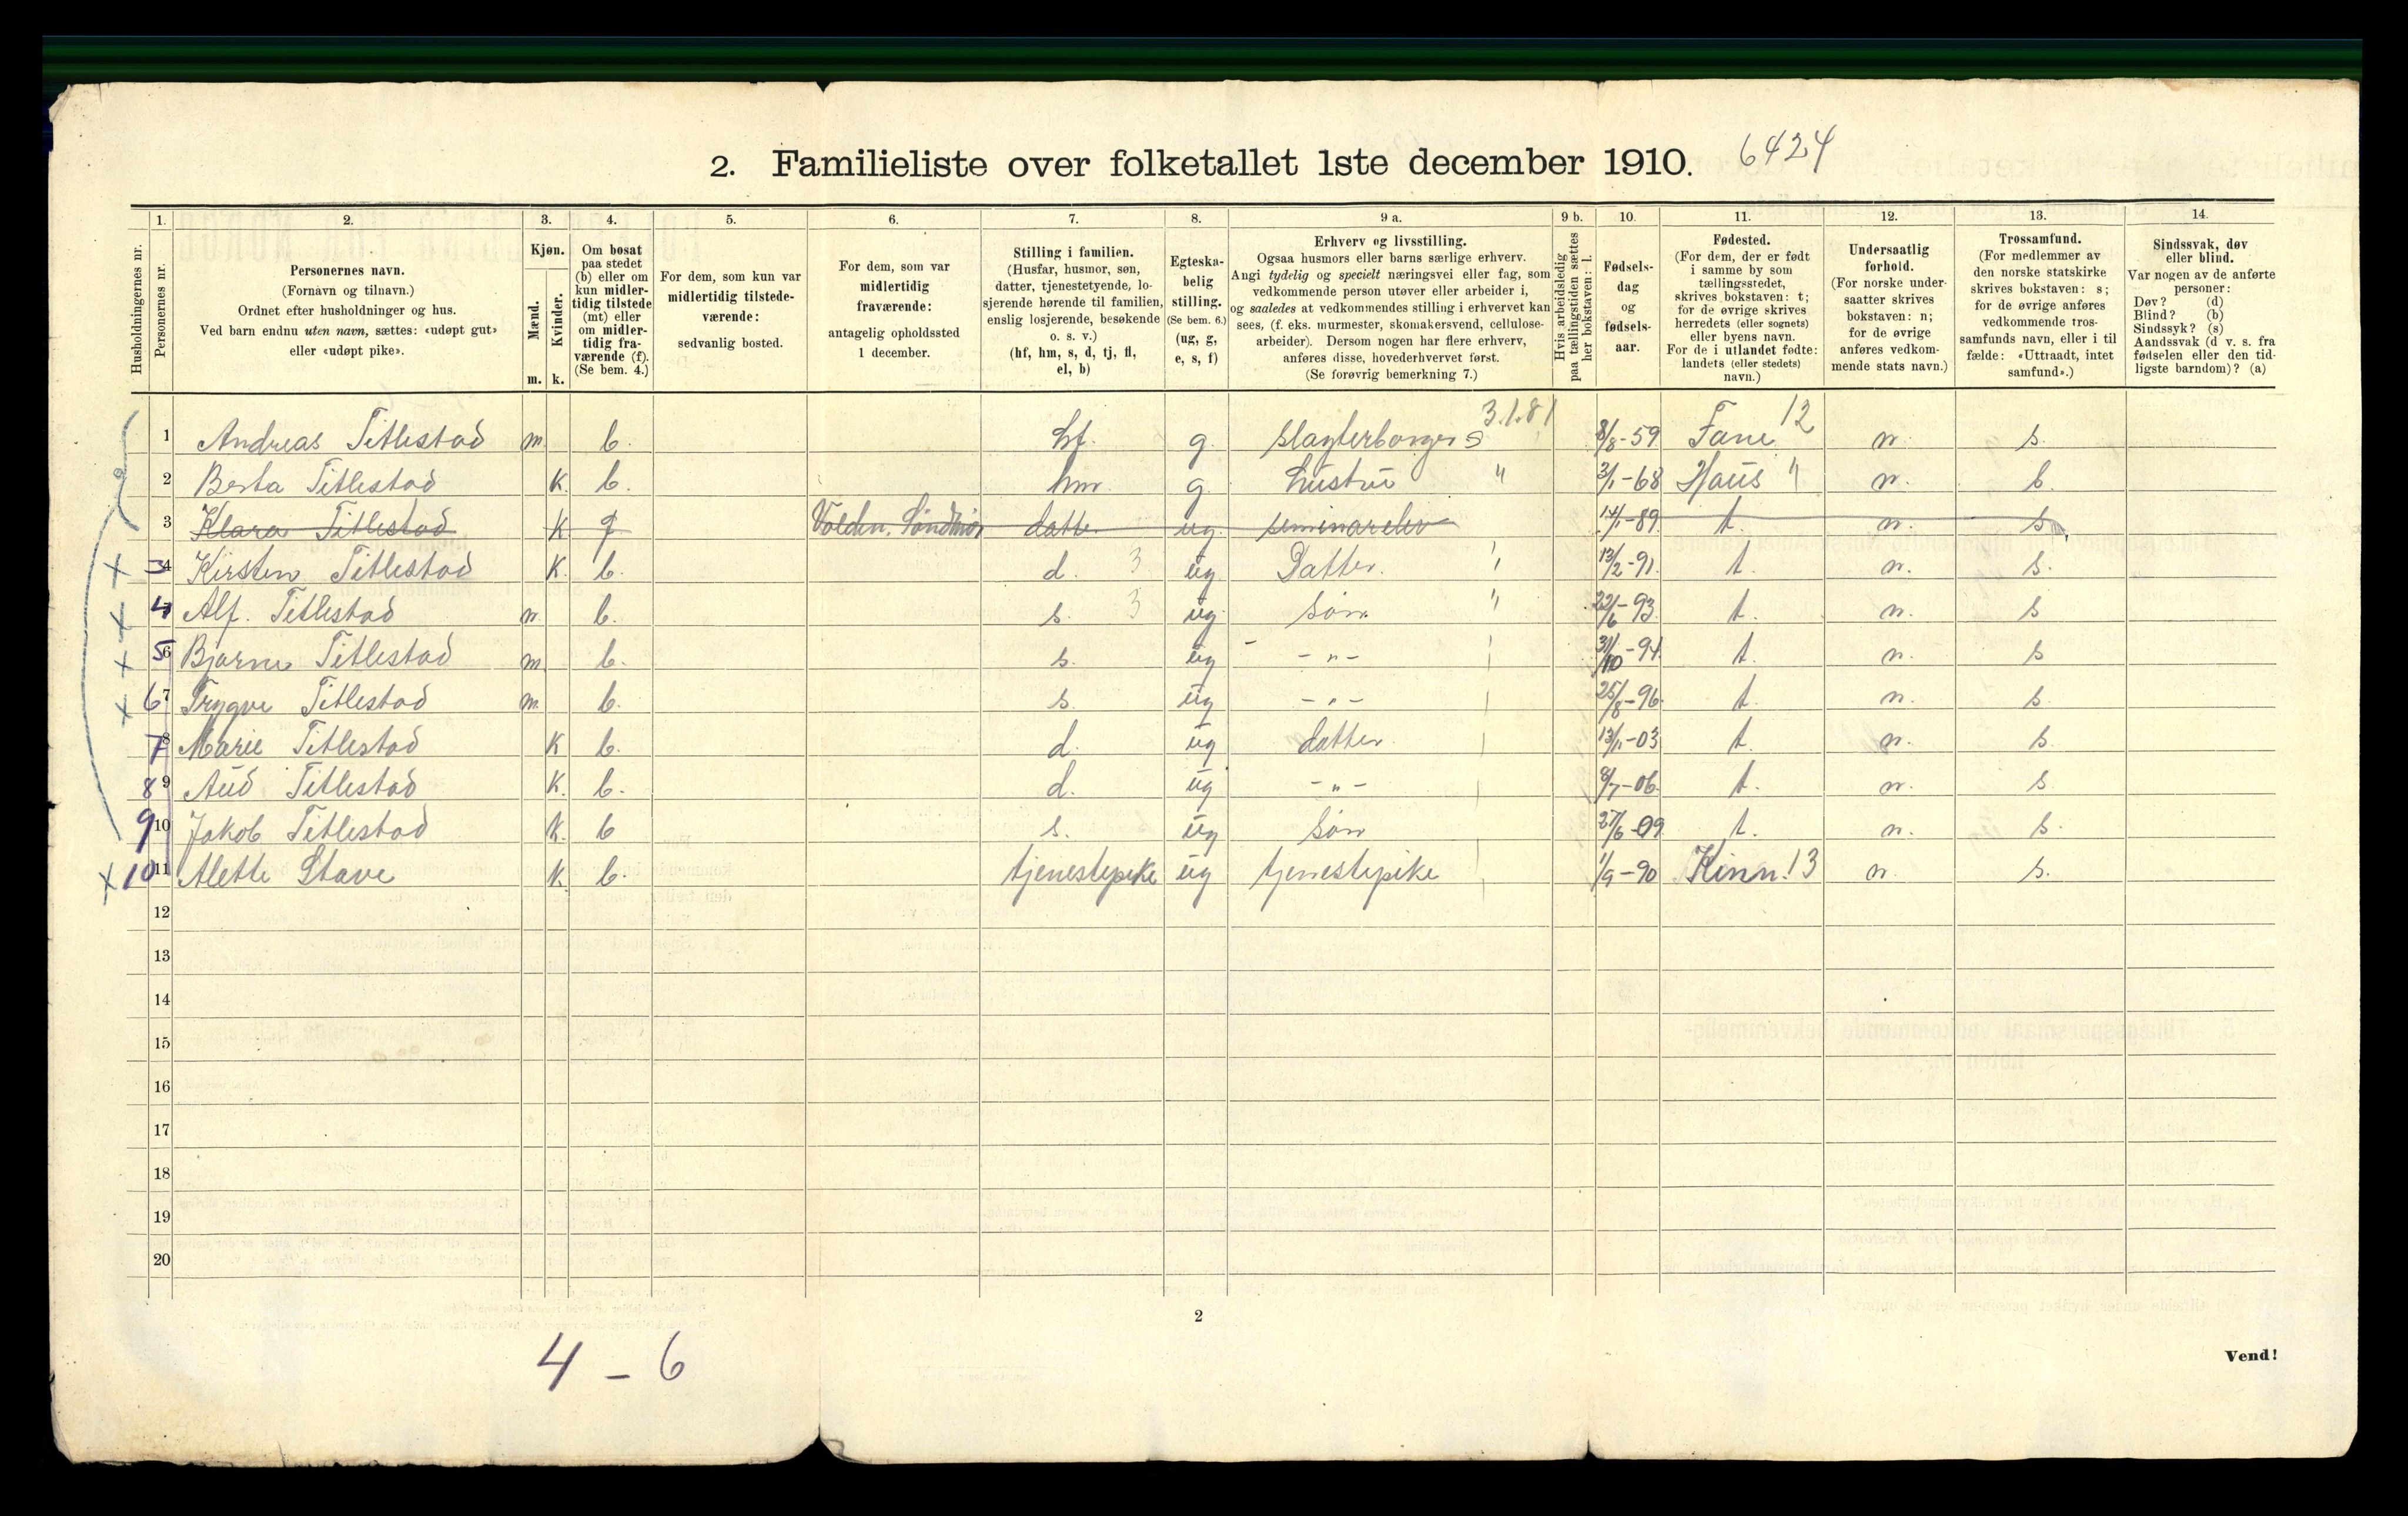 2. Familieliste over folketallet 1ste december 1910. 6424
1. 2. 3. 4. 5. 6. 7. 8. 9 a. 9 b. 10. 11. 12. 13. 14.
Husholdningernes nr.
Personernes nr.
Personernes navn.
(Fornavn og tilnavn.)
Ordnet efter husholdninger og hus.
Ved barn endnu uten navn, sættes: «udøpt gut»
eller «udøpt pike».
Kjøn.
Mænd.
Kvinder.
m. k.
Om bosat
paa stedet
(b) eller om
kun midler-
tidig tilstede
(mt) eller
om midler-
tidig fra-
værende (f).
(Se bem. 4.)
For dem, som kun var
midlertidig tilstede-
værende:
sedvanlig bosted.
For dem, som var
midlertidig
fraværende:
antagelig opholdssted
1 december.
Stilling i familien.
(Husfar, husmor, søn,
datter, tjenestetyende, lo-
sjerende hørende til familien,
enslig losjerende, besøkende
o. s. v.)
(hf, hm, s, d, tj, fl,
el, b)
Egteska-
belig
stilling.
(Se bem. 6.)
(ug, g,
e, s, f)
Erhverv og livsstilling.
Ogsaa husmors eller barns særlige erhverv.
Angi tydelig og specielt næringsvei eller fag, som
vedkommende person utøver eller arbeider i,
og saaledes at vedkommendes stilling i erhvervet kan
sees, (f. eks. murmester, skomakersvend, cellulose-
arbeider). Dersom nogen har flere erhverv,
anføres disse, hovederhvervet først.
(Se forøvrig bemerkning 7.)
Hvis arbeidsledig
paa tællingstiden sættes
her bokstaven: l.
Fødsels-
dag
og
fødsels-
aar.
Fødested.
(For dem, der er født
i samme by som
tællingsstedet,
skrives bokstaven: t;
for de øvrige skrives
herredets (eller sognets)
eller byens navn.
For de i utlandet fødte:
landets (eller stedets)
navn.)
Undersaatlig
forhold.
(For norske under-
saatter skrives
bokstaven: n;
for de øvrige
anføres vedkom-
mende stats navn.)
Trossamfund.
(For medlemmer av
den norske statskirke
skrives bokstaven: s;
for de øvrige anføres
vedkommende tros-
samfunds navn, eller i til-
fælde: «Uttraadt, intet
samfund».)
Sindssvak, døv
eller blind.
Var nogen av de anførte
personer:
Døv? (d)
Blind? (b)
Sindssyk? (s)
Aandssvak (d v. s. fra
fødselen eller den tid-
ligste barndom)? (a)
3.1.81
1 Andreas Titlestad m b. hf. g. slagterborger S 8/8-59 Fane 12 n. s.
2 Berta Titlestad K. b. hm. g. hustru " 3/1-68 Haus " n. s.
3 Klara Titlestad K f Volden. Søndmør datter ug. seminarelev 14/1-89 t. n. s
3 4 Kirsten Titlestad K. b. d. 3 ug Datter. 13/2-91. t. n. s.
4 Alf. Titlestad m b. s. 3 ug. Søn. " 22/6-93. t. n. s
5 6 Bjarne Titlestad m b. s. ug -"- 31/10-94. t. n. s
6 7 Trygve Titlestad m b. s. ug -"- 25/8-96. t. n. s.
7 8 Marie Titlestad K b. d. ug datter 13/11-03 t. n. s.
8 9 Aud Titlestad K. b. d. ug -"- 8/7-06. t. n. s
9 10 Jakob Titlestad K. b s. ug Søn 27/6-09 t. n. s.
x 10 11 Alette Stave K b. tjenestepike ug tjenestepike 1/9-90 Kinn. 13 n. s.
12
13
14
15
16
17
18
19
20
2
4 - 6
Vend!